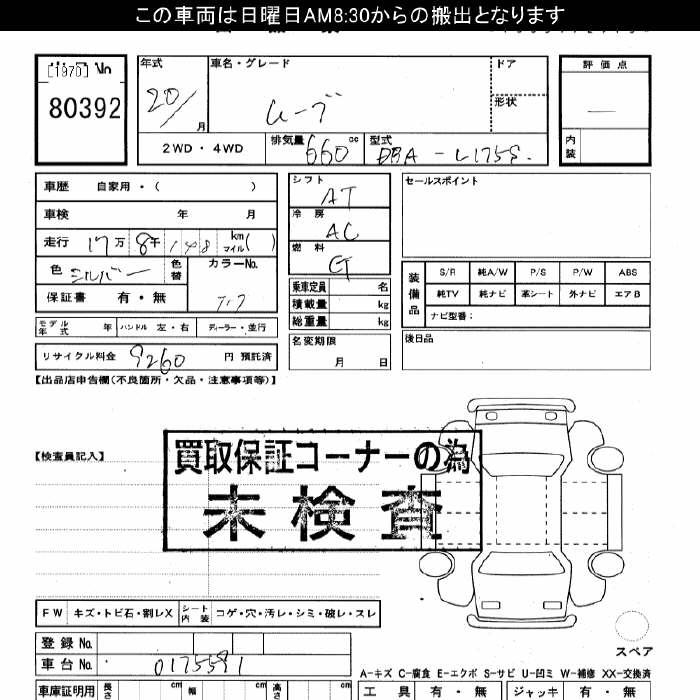 この車両は日曜日AM8:30からの搬出となります
[1970] No
80392
年式 20/ 月
車名・グレード ムーブ
ドア
形状
評価点
内装
2WD・4WD
排気量 660 cc
型式 DBA-L175S
車歴 自家用・( )
車検 年 月
走行 17万 8千 148 km マイル( )
色 シルバー 色替
カラーNo.
保証書 有・無
モデル年式 年 ハンドル 左・右 ディーラー・並行
リサイクル料金 9260 円 預託済
シフト AT
冷房 AC
燃料 G
乗車定員 名
積載量 kg
総重量 kg
名変期限 月 日
セールスポイント
装備品
S/R 純A/W P/S P/W ABS
純TV 純ナビ 革シート 外ナビ エアB
ナビ型番:
後日品
【出品店申告欄(不良箇所・欠品・注意事項等)】
【検査員記入】
買取保証コーナーの為
未検査
FW キズ・トビ石・割レX シート内装 コゲ・穴・汚レ・シミ・破レ・スレ
スペア
登録 No.
車台 No. 0175591
A-キズ C-腐食 E-エクボ S-サビ U-凹ミ W-補修 XX-交換済
車庫証明用 長さ cm 幅 cm 高さ cm
工具 有・無 ジャッキ 有・無